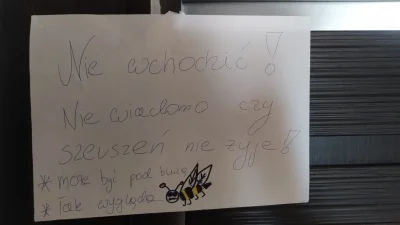 Nie wchodzić!
Nie wiadomo czy
szeuszeń nie żyje!
* może być pod bluzą
* Tak wygląda